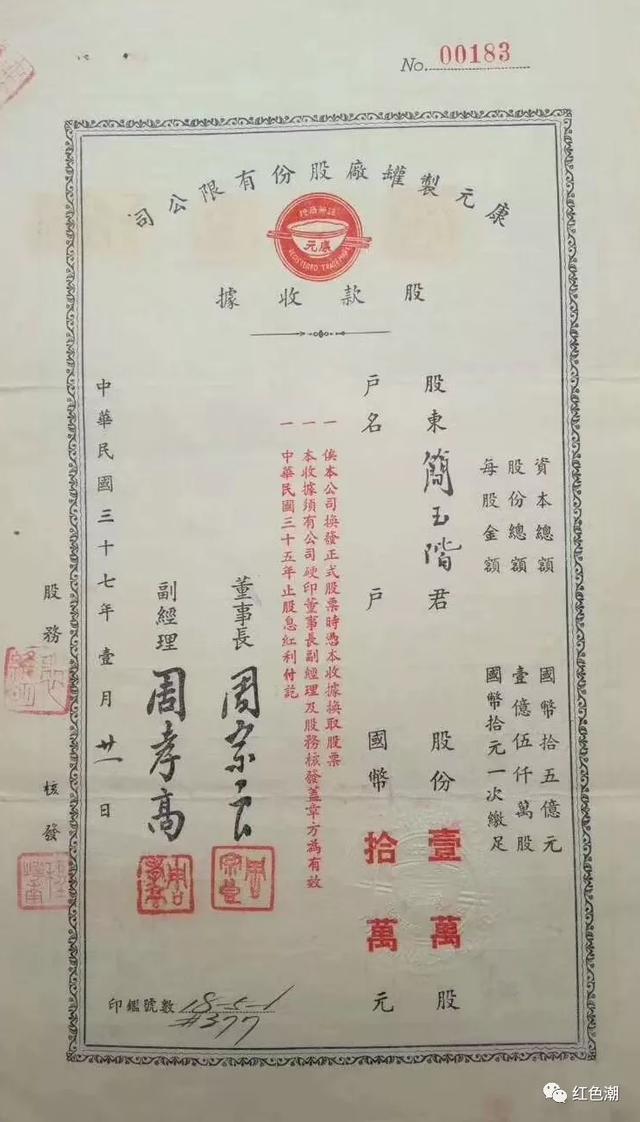 No. 00183
康元製罐廠股份有限公司
註冊商標
康元
REGISTERED TRADE MARK
股款收據
資本總額 國幣拾五億元
股份總額 壹億伍仟萬股
每股金額 國幣拾元一次繳足
股東 簡玉階 君 股份 壹萬 股
戶名 戶 國幣 拾萬 元
一 俟本公司換發正式股票時憑本收據換取股票
一 本收據須有公司硬印董事長副經理及股務核發蓋章方為有效
一 中華民國三十五年止股息紅利付訖
董事長
副經理 周孝高
中華民國三十七年壹月廿一日
股務
核發
印鑑號數 18-5-1
#377
红色潮